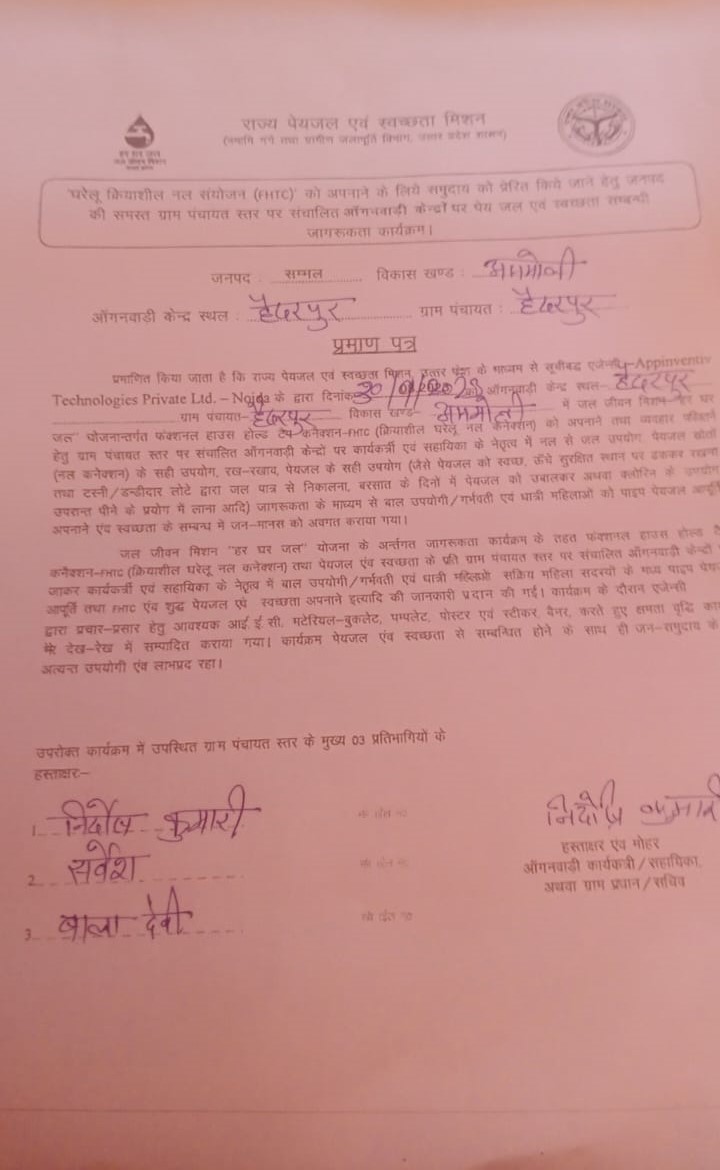 राज्य पेयजल एवं स्वच्छता मिशन
(नमामि गंगे तथा ग्रामीण जलापूर्ति विभाग, उत्तर प्रदेश शासन)
हर घर जल
'घरेलू क्रियाशील नल संयोजन (FHTC)' को अपनाने के लिये समुदाय को प्रेरित किये जाने हेतु जनपद
की समस्त ग्राम पंचायत स्तर पर संचालित आँगनवाडी केन्द्रों पर पेय जल एवं स्वच्छता सम्बन्धी
जागरूकता कार्यक्रम।
जनपद : सम्भल विकास खण्ड : असमोली
आँगनवाडी केन्द्र स्थल : हैदरपुर ग्राम पंचायत : हैदरपुर
प्रमाण पत्र
प्रमाणित किया जाता है कि राज्य पेयजल एवं स्वच्छता मिशन, उत्तर प्रदेश के माध्यम से सूचीबद्ध एजेन्सी-Appinventiv
Technologies Private Ltd. – Noida के द्वारा दिनांक आँगनवाडी केन्द्र स्थल- हैदरपुर
ग्राम पंचायत- हैदरपुर विकास खण्ड- असमोली में जल जीवन मिशन-"हर घर
जल" योजनान्तर्गत फंक्शनल हाउस होल्ड टैप कनेक्शन-FHTC (क्रियाशील घरेलू नल कनेक्शन) को अपनाने तथा व्यवहार परिवर्तन
हेतु ग्राम पंचायत स्तर पर संचालित आँगनवाडी केन्द्रों पर कार्यकर्त्री एवं सहायिका के नेतृत्व में नल से जल उपयोग, पेयजल स्रोतों
(नल कनेक्शन) के सही उपयोग, रख-रखाव, पेयजल के सही उपयोग (जैसे पेयजल को स्वच्छ, ऊँचे सुरक्षित स्थान पर ढककर रखना
तथा टस्नी/डन्डीदार लोटे द्वारा जल पात्र से निकालना, बरसात के दिनों में पेयजल को उबालकर अथवा क्लोरिन के उपयोग
उपरान्त पीने के प्रयोग में लाना आदि) जागरूकता के माध्यम से बाल उपयोगी/गर्भवती एवं धात्री महिलाओं को पाइप पेयजल आपूर्ति
अपनाने एंव स्वच्छता के सम्बन्ध में जन-मानस को अवगत कराया गया।
जल जीवन मिशन "हर घर जल" योजना के अर्न्तगत जागरूकता कार्यक्रम के तहत फंक्शनल हाउस होल्ड टै
कनैक्शन-FHTC (क्रियाशील घरेलू नल कनेक्शन) तथा पेयजल एंव स्वच्छता के प्रति ग्राम पंचायत स्तर पर संचालित आँगनवाडी केन्द्रों
जाकर कार्यकर्त्री एवं सहायिका के नेतृत्व में बाल उपयोगी/गर्भवती एवं धात्री महिलाओ सक्रिय महिला सदस्यो के मध्य पाइप पेयज
आपूर्ति तथा FHTC एंव शुद्ध पेयजल एंव स्वच्छता अपनाने इत्यादि की जानकारी प्रदान की गई। कार्यक्रम के दौरान एजेन्सी
द्वारा प्रचार-प्रसार हेतु आवश्यक आई.ई.सी. मटेरियल-बुकलेट, पम्पलेट, पोस्टर एवं स्टीकर, बैनर, करते हुए क्षमता वृद्धि का
देख-रेख में सम्पादित कराया गया। कार्यक्रम पेयजल एंव स्वच्छता से सम्बन्धित होने के साथ ही जन-समुदाय के
अत्यन्त उपयोगी एंव लाभप्रद रहा।
उपरोक्त कार्यक्रम में उपस्थित ग्राम पंचायत स्तर के मुख्य 03 प्रतिभागियों के
हस्ताक्षर:-
1. निर्दोष कुमारी
2. सर्वेश
3. बाला देवी
निर्दोष कुमारी
हस्ताक्षर एंव मोहर
आँगनवाडी कार्यकत्री/सहायिका,
अथवा ग्राम प्रधान/सचिव